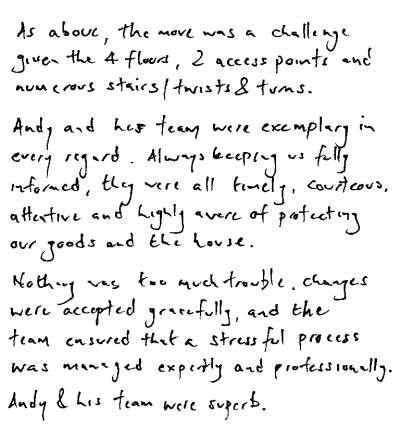 As above, the move was a challenge
given the 4 floors, 2 access points and
numerous stairs/twists & turns.
Andy and his team were exemplary in
every regard. Always keeping us fully
informed, they were all timely, courteous,
attentive and highly aware of protecting
our goods and the house.
Nothing was too much trouble, changes
were accepted gracefully, and the
team ensured that a stressful process
was managed expertly and professionally.
Andy & his team were superb.